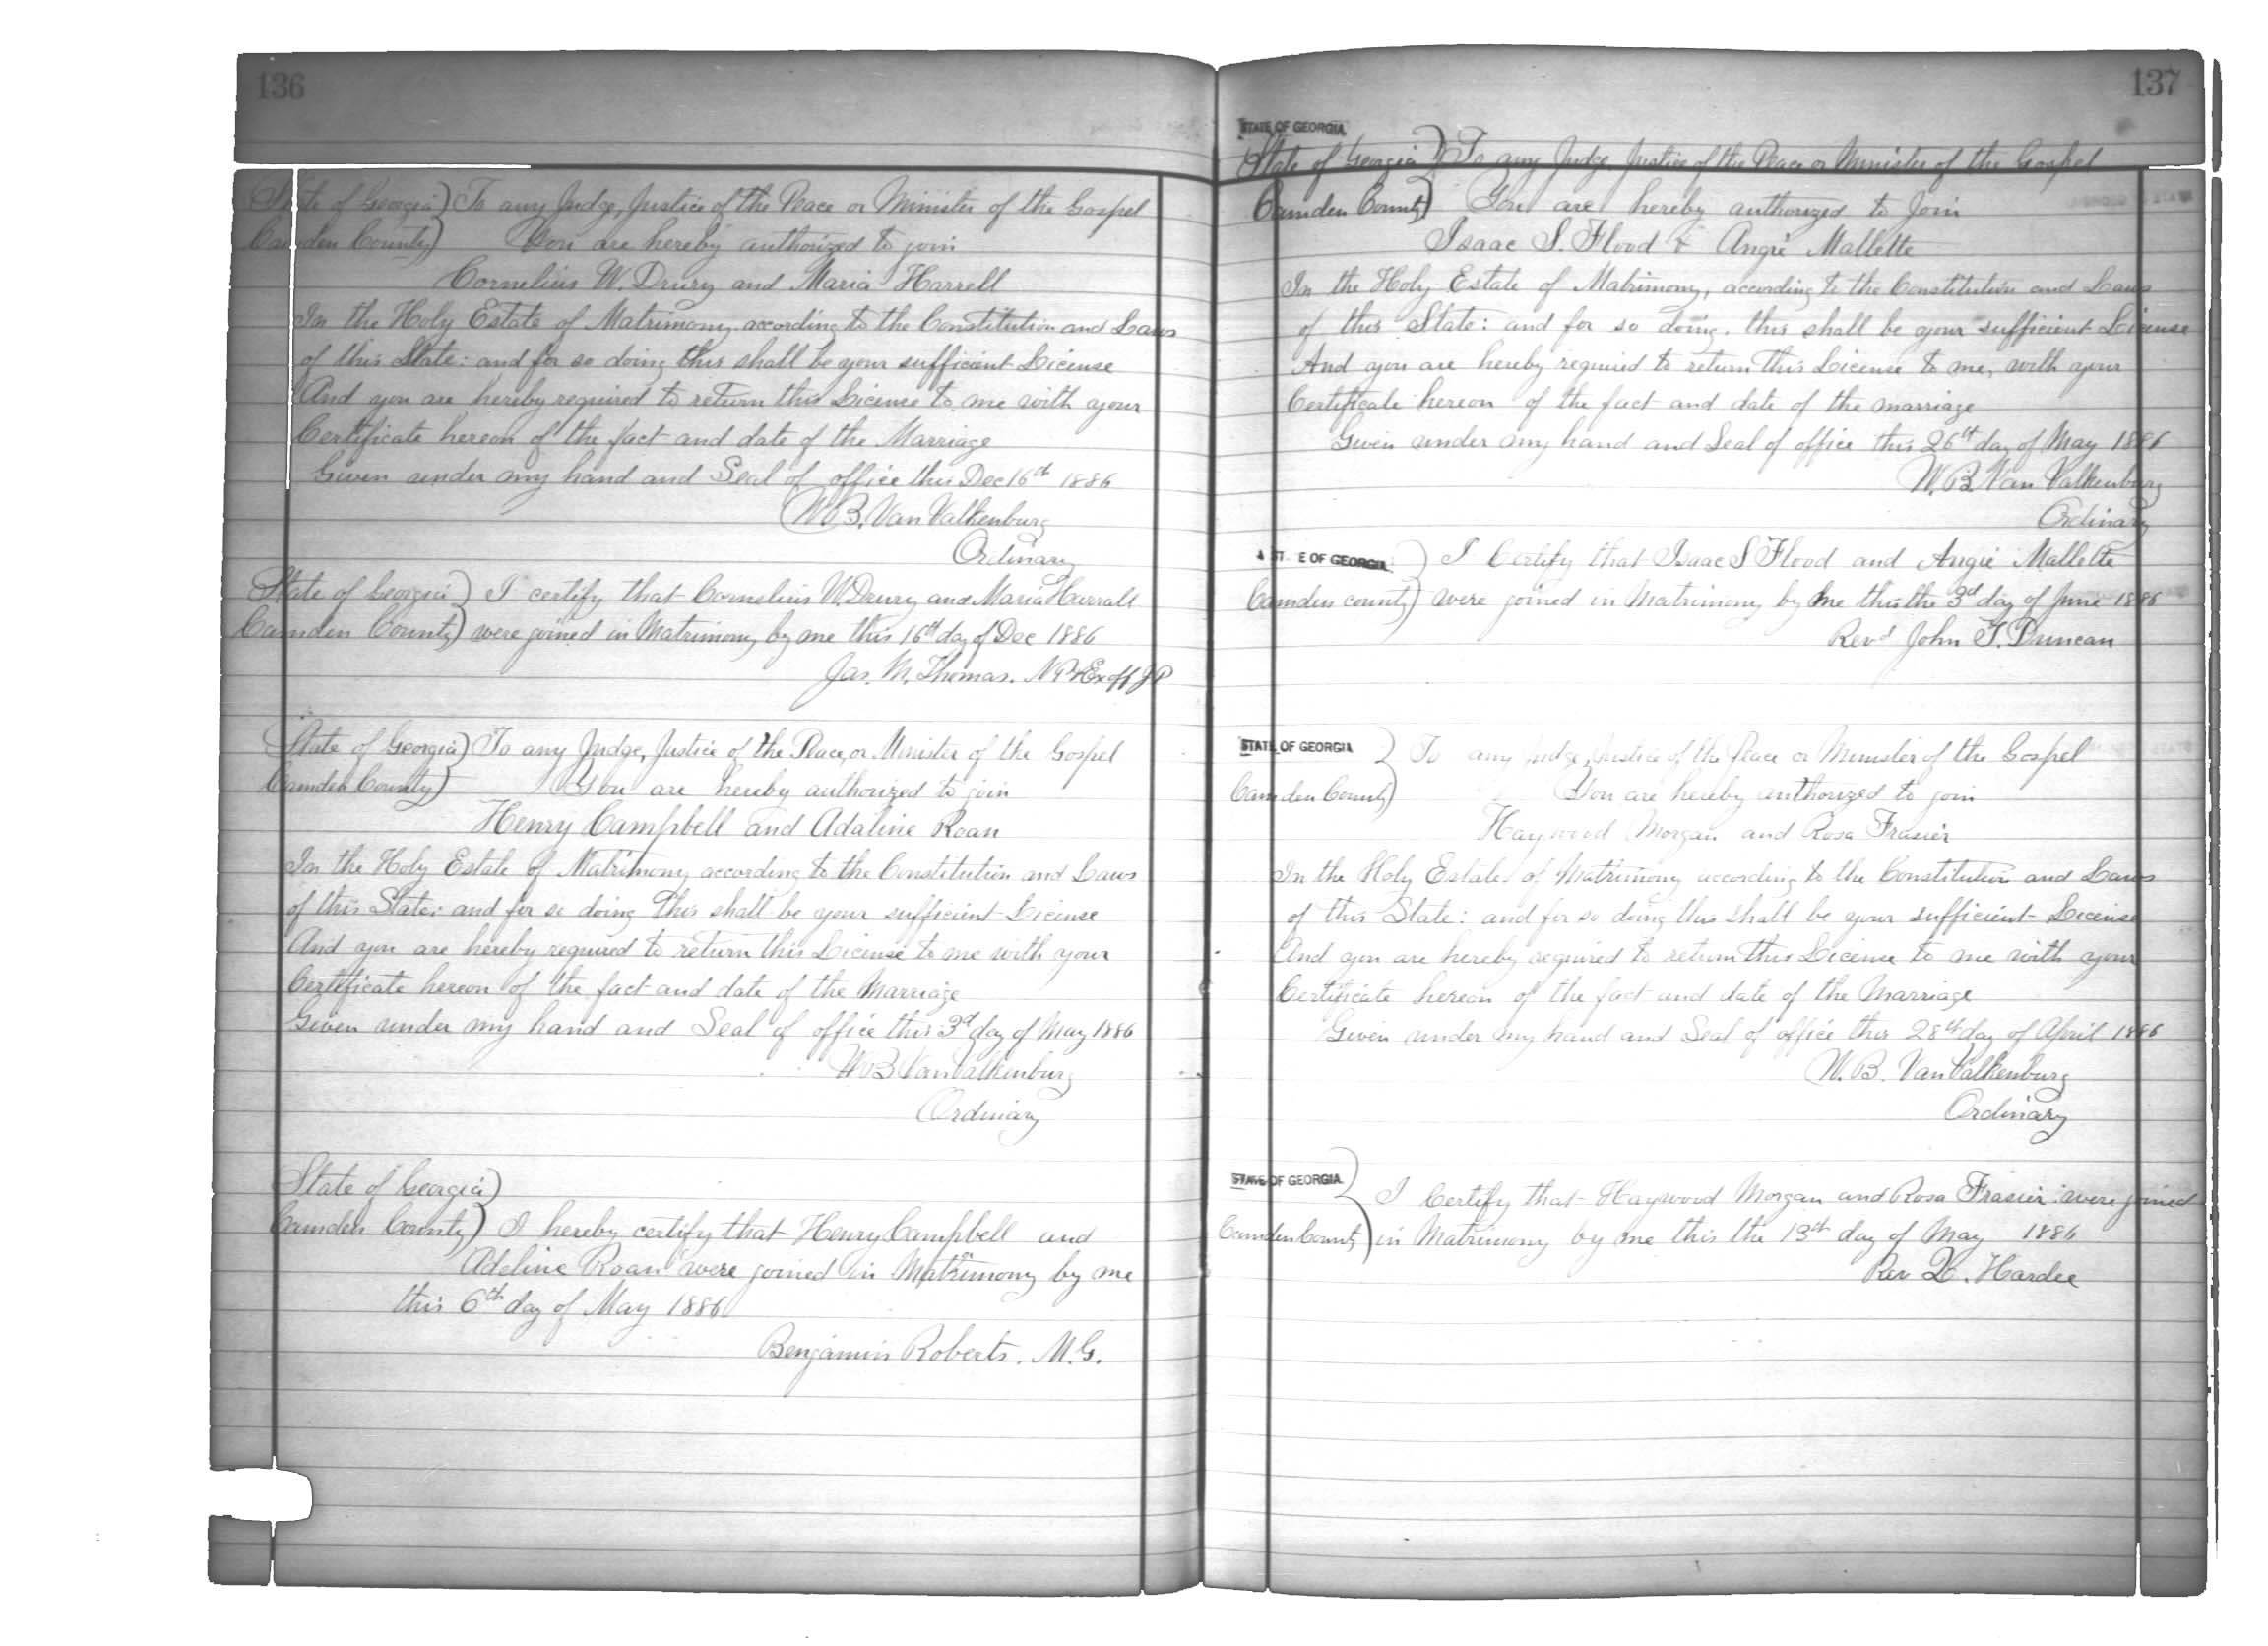 136
State of Georgia) To any Judge, Justice of the Peace or Minister of the Gospel
Camden County) You are hereby authorized to join
Cornelius W. Drury and Maria Harrell
In the Holy Estate of Matrimony according to the Constitution and Laws
of this State: and for so doing this shall be your sufficient License
And you are hereby required to return this License to me with your
Certificate hereon of the fact and date of the Marriage
Given under my hand and Seal of office this Dec 16th 1886
W.B. Van Valkenburg
Ordinary
State of Georgia) I certify that Cornelius W. Drury and Maria Harrall
Camden County) were joined in Matrimony by me this 16th day of Dec 1886
Jas. M. Thomas. N.P. & Ex off J P
State of Georgia) To any Judge, Justice of the Peace, or Minister of the Gospel
Camden County) You are hereby authorized to join
Henry Campbell and Adaline Roan
In the Holy Estate of Matrimony according to the Constitution and Laws
of this State: and for so doing this shall be your sufficient License
And you are hereby required to return this License to me with your
Certificate hereon of the fact and date of the Marriage
Given under my hand and Seal of office this 3d day of May 1886
W B Van Valkenburg
Ordinary
State of Georgia)
Camden County) I hereby certify that Henry Campbell and
Adeline Roan were joined in Matrimony by me
this 6th day of May 1886
Benjamin Roberts. M.G.
137
STATE OF GEORGIA
State of Georgia) To any Judge, Justice of the Peace or Minister of the Gospel
Camden County) You are hereby authorized to join
Isaac S. Flood & Angie Mallette
In the Holy Estate of Matrimony, according to the Constitution and Laws
of this State: and for so doing, this shall be your sufficient License
And you are hereby required to return this License to me, with your
Certificate hereon of the fact and date of the marriage
Given under my hand and Seal of office this 26th day of May 1886
W.B. Van Valkenburg
Ordinary
STATE OF GEORGIA) I Certify that Isaac S Flood and Angie Mallette
Camden county) were joined in Matrimony by me this the 3d day of June 1886
Revd John T. Duncan
STATE OF GEORGIA) To any Judge, Justice of the Peace or Minister of the Gospel
Camden County) You are hereby authorized to join
Haywood Morgan and Rosa Frasier
In the Holy Estate of Matrimony according to the Constitution and Laws
of this State: and for so doing this shall be your sufficient License
And you are hereby required to return this License to me with your
Certificate hereon of the fact and date of the Marriage
Given under my hand and Seal of office this 28th day of April 1886
W. B. Van Valkenburg
Ordinary
STATE OF GEORGIA) I Certify that Haywood Morgan and Rosa Frasier were joined
Camden County) in Matrimony by me this the 13th day of May 1886
Rev Hardee